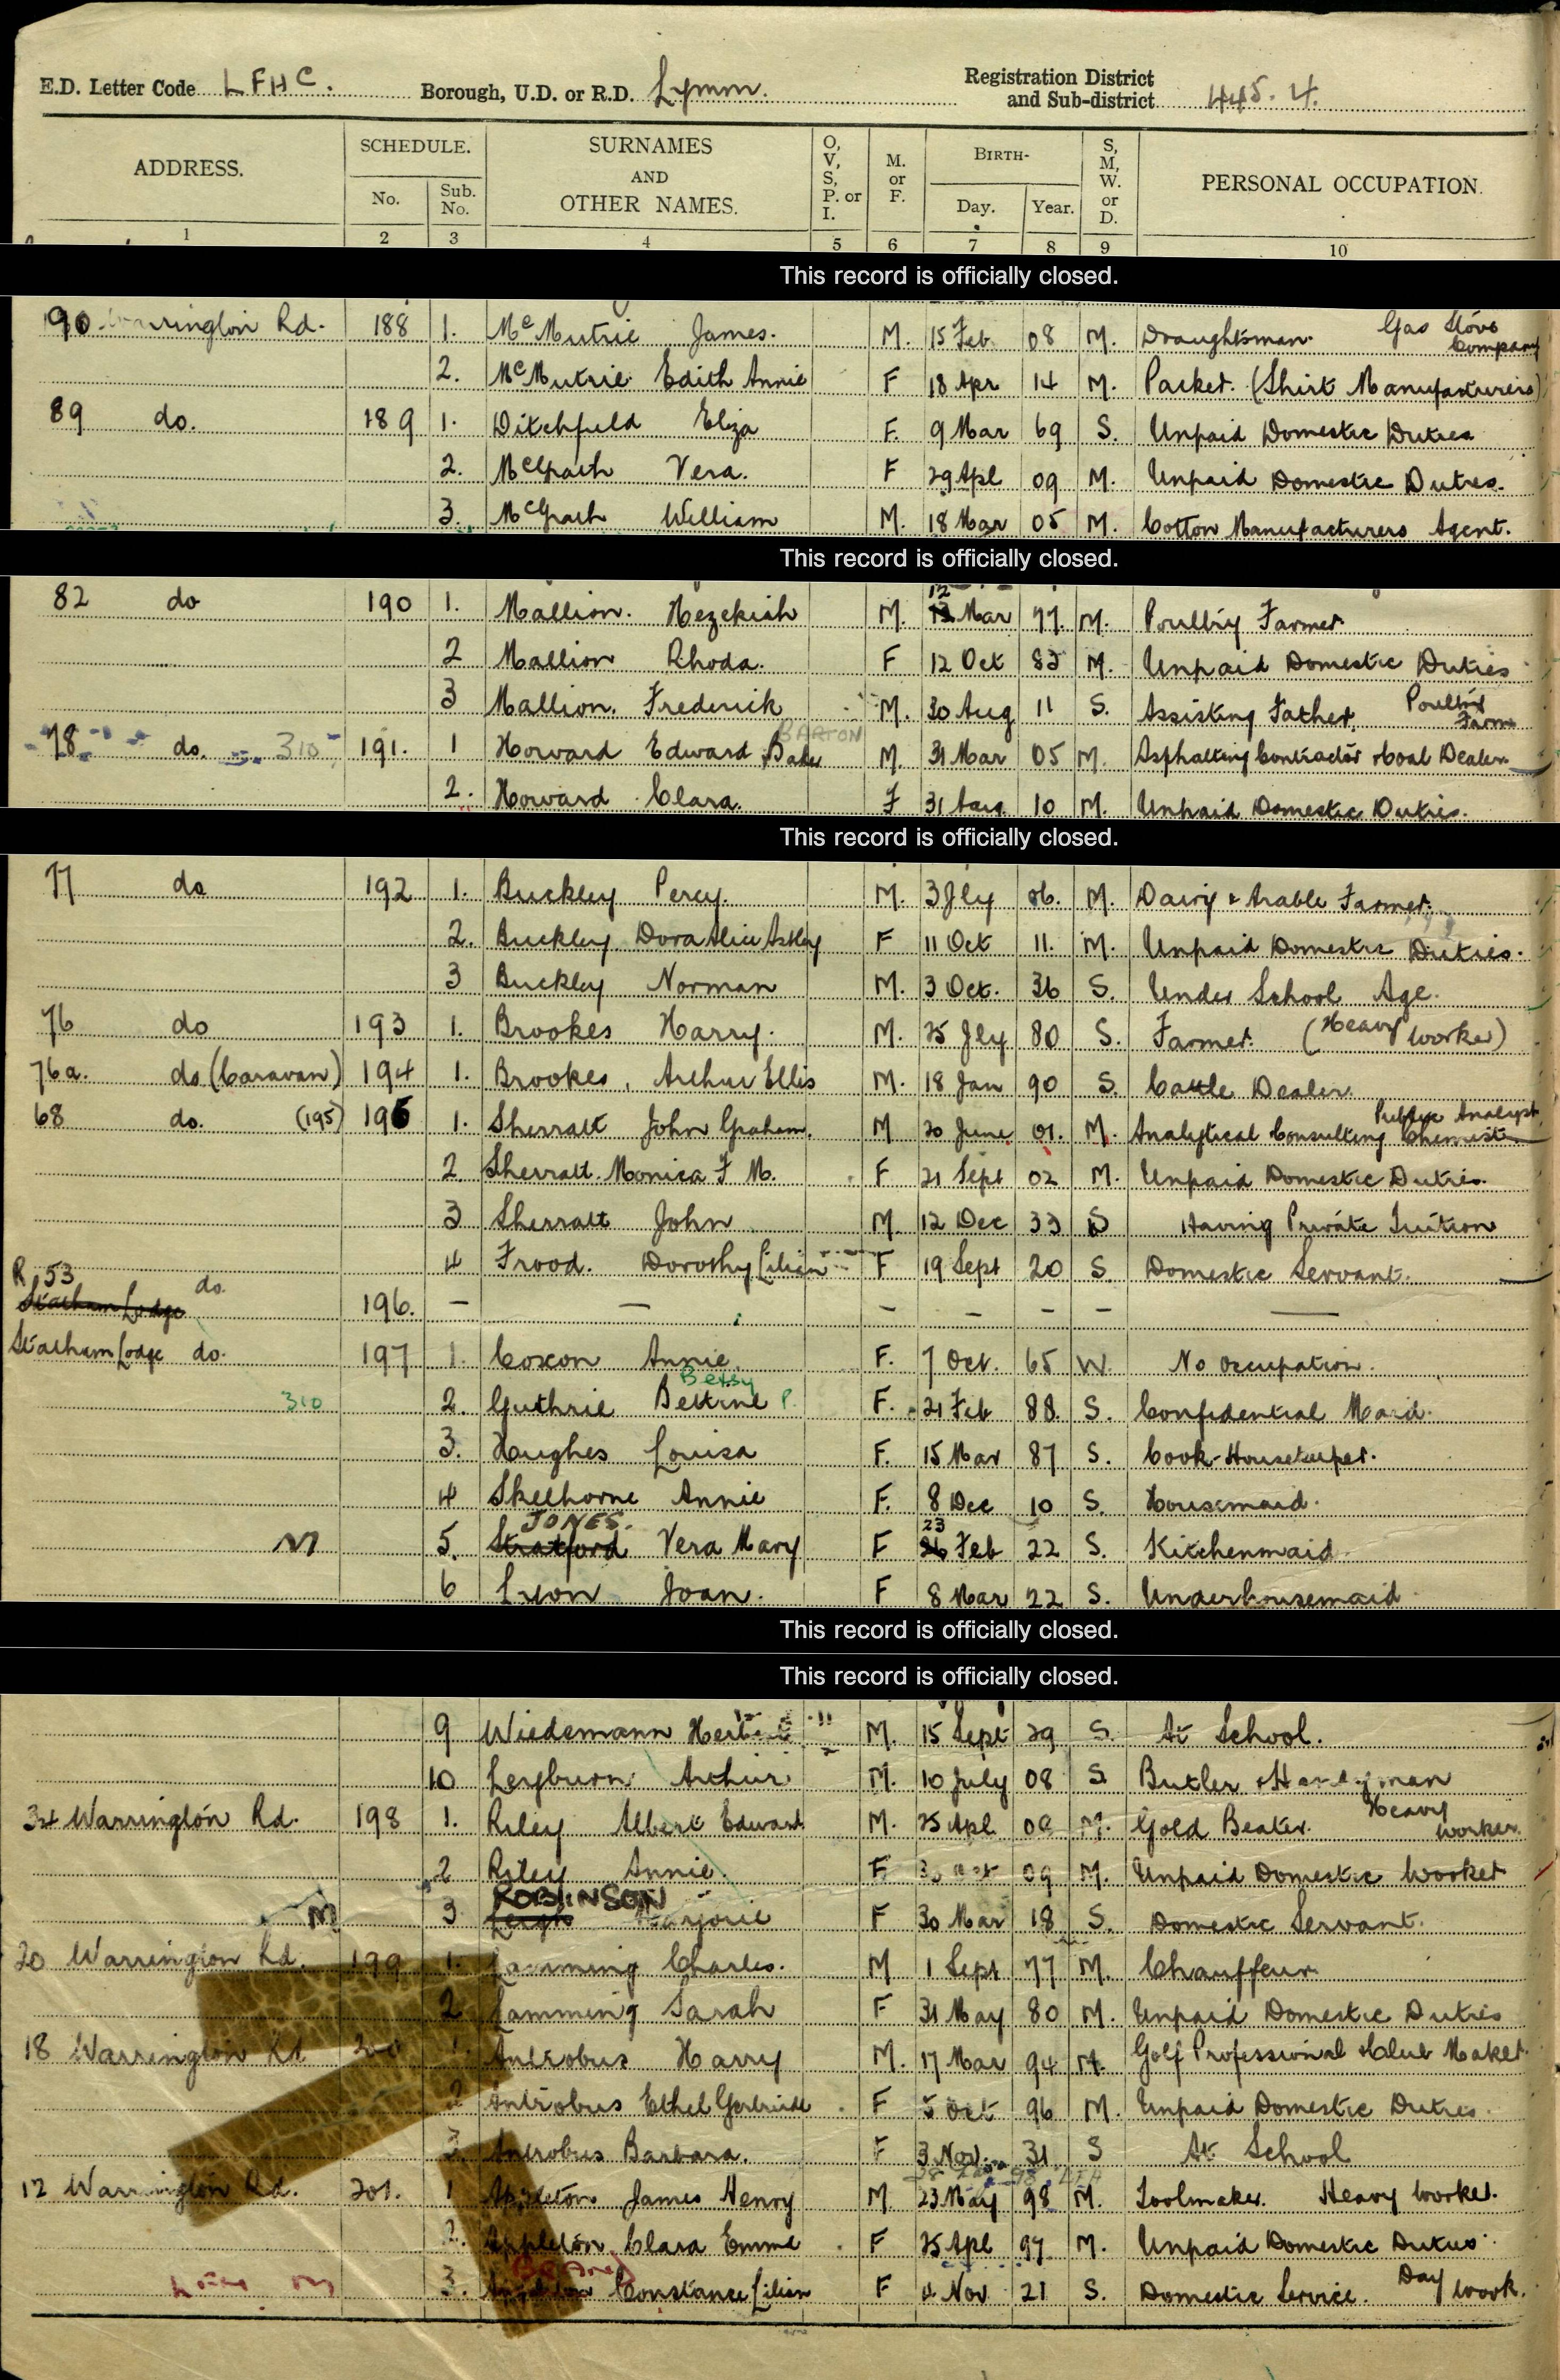 E.D. Letter Code LFHC. Borough, U.D. or R.D. Lymm. Registration District and Sub-district 445.4.
ADDRESS. SCHEDULE. No. Sub. No. SURNAMES AND OTHER NAMES. O, V, S, P. or I. M. or F. BIRTH- Day. Year. S, M, W. or D. PERSONAL OCCUPATION.
1 2 3 4 5 6 7 8 9 10
This record is officially closed.
90 Warrington Rd. 188 1. McMutrie James. M. 15 Feb 08 M. Draughtsman. Gas Stove Company
2. McMutrie Edith Annie F 18 Apr 14 M. Packer. (Shirt Manufacturers)
89 do. 189 1. Ditchfield Eliza F. 9 Mar 69 S. Unpaid Domestic Duties
2. McGrath Vera. F 29 Apl 09 M. Unpaid Domestic Duties.
3. McGrath William M. 18 Mar 05 M. Cotton Manufacturers Agent.
This record is officially closed.
82 do 190 1. Mallion. Hezekiah M. 12 Mar 77. M. Poultry Farmer
2 Mallion Rhoda. F 12 Oct 83 M. Unpaid Domestic Duties
3 Mallion. Frederick M. 30 Aug 11 S. Assisting Father. Poultry Farm
78 do. 310 191. 1 Horward Edward BARTON M. 31 Mar 05 M. Asphalting Contractor & Coal Dealer
2. Horward Clara. F 31 Aug 10 M. Unpaid Domestic Duties.
This record is officially closed.
77 do 192 1. Buckley Percy. M. 3 Jly 06. M. Dairy & Arable Farmer.
2. Buckley Dora Alice Astley F 11 Oct 11. M. Unpaid Domestic Duties.
3 Buckley Norman M. 3 Oct. 36 S. Under School Age.
76 do 193 1. Brookes Harry. M. 25 Jly 80 S. Farmer. (Heavy Worker)
76a. do (Caravan) 194 1. Brookes, Arthur Ellis M. 18 Jan 90 S. Cattle Dealer.
68 do. (195) 195 1. Sherratt John Graham. M 20 June 01. M. Analytical Consulting Chemist Public Analyst
2 Sherratt. Monica F M. F 21 Sept 02 M. Unpaid Domestic Duties.
3 Sherratt John M. 12 Dec 33 S Having Private Tuition
4 Frood. Dorothy Lilian F 19 Sept 20 S. Domestic Servant.
R, 53 do.
Statham Lodge 196. — — — — — — —
Statham Lodge do. 197 1. Coxon Annie. F. 7 Oct. 65 W. No Occupation.
Betsy
310 2. Guthrie Bettine P. F. 21 Feb 88. S. Confidential Maid.
3. Hughes Louisa F. 15 Mar 87 S. Cook-Housekeeper.
4 Skelhorne Annie F. 8 Dec 10 S. Housemaid.
JONES. 23
M 5. Stratford Vera Mary F Feb 22 S. Kitchenmaid
6 Lyon Joan. F 8 Mar 22 S. Underhousemaid
This record is officially closed.
This record is officially closed.
9 Wiedemann M. 15 Sept 29 S. At School.
10 Leyburn Arthur M. 10 July 08 S Butler & Handyman
34 Warrington Rd. 198 1. Riley Albert Edward M. 25 Apl 08 M. Gold Beater. Heavy Worker.
2 Riley Annie. F 30 Oct 09 M. Unpaid Domestic Worker
ROBINSON
M 3 Marjorie F 30 Mar 18 S. Domestic Servant.
20 Warrington Rd. 199 1. Lamming Charles. M 1 Sept 77 M. Chauffeur
2 Lamming Sarah F 31 May 80 M. Unpaid Domestic Duties
18 Warrington Rd 200 1. Antrobus Harry M. 17 Mar 94 M. Golf Professional & Club Maker.
2 Antrobus Ethel Gertrude F 5 Oct 96 M. Unpaid Domestic Duties.
3. Antrobus Barbara. F 3 Nov. 31 S At School
12 Warrington Rd. 201. 1 Appleton James Henry M. 23 May 98 M. Toolmaker. Heavy Worker.
2. Appleton Clara Emma F 25 Apl 97 M. Unpaid Domestic Duties.
3. Appleton Constance Lilian F 4 Nov 21 S. Domestic Service. Day Work.